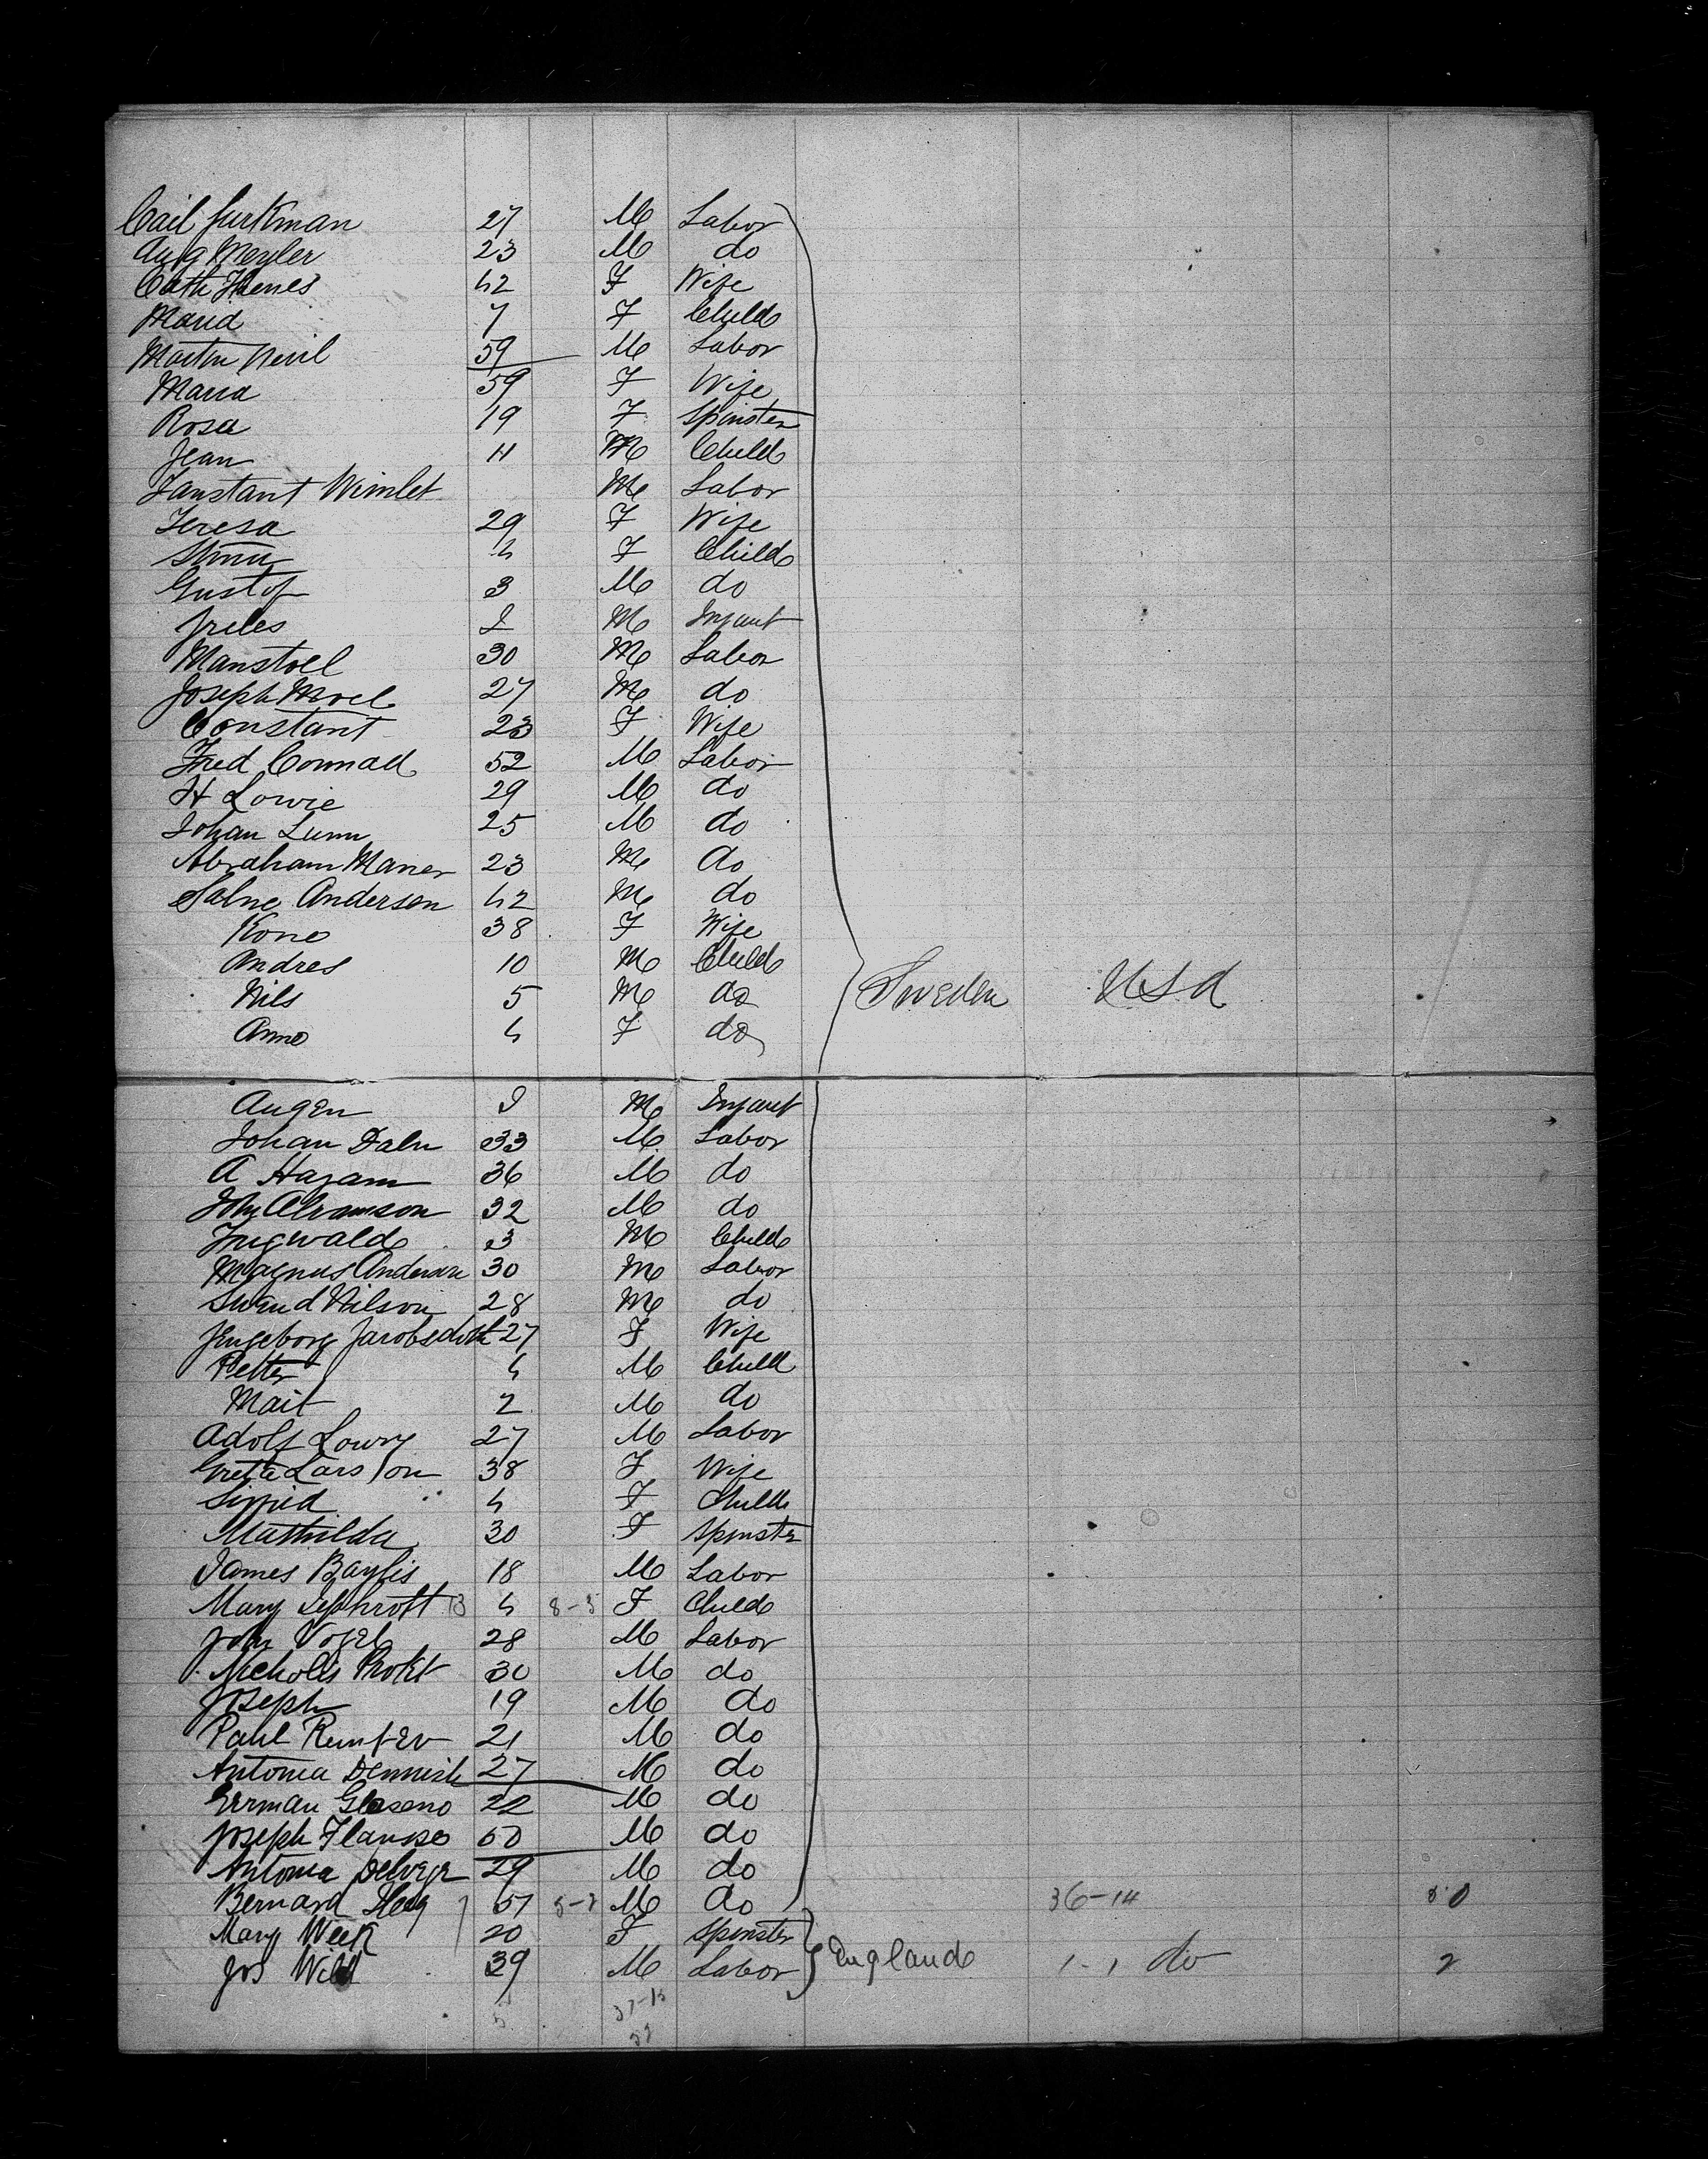 Carl Turkman 27 M Labor
Aug Meyler 23 M do
Cath Thenes 42 F Wife
Maud 7 F Child
Martin Nevil 59 M Labor
Maria 59 F Wife
Rosa 19 F Spinster
Jean 11 M Child
Tanstant Wimlet M Labor
Teresa 29 F Wife
4 F Child
Gustof 3 M do
Jules I M Infant
Manstoel 30 M Labor
Joseph Moel 27 M do
Constant 23 F Wife
Fred Connad 52 M Labor
H Lowie 29 M do
Johan Lunn 25 M do
Abraham Maner 23 M do
Anderson 42 M do
Kono 38 F Wife
Andres 10 M Child
Nils 5 M do Sweden USA
Anno 4 F do
Augen I M Infant
Johan Daln 33 M Labor
A Hagam 36 M do
John Abramson 32 M do
Ingwald 3 M Child
Magnus Anderson 30 M Labor
Swend Nilson 28 M do
Jengeborg Jacobsdott 27 F Wife
Petter 4 M Child
Mait 2 M do
Adolf Lowry 27 M Labor
Greta Larsson 38 F Wife
Sigrid 4 F Child
Mathilda 30 F Spinster
James Baylis 18 M Labor
Mary 13 4 8-5 F Child
John Vogel 28 M Labor
Nicholis Prokt 30 M do
Joseph 19 M do
Paul Rumfer 21 M do
Antonia Dennish 27 M do
Herman Gloseno 22 M do
Joseph Flansse 50 M do
Antonia 29 M do
Bernard Heg 51 M do 36-14 50
Mary Week 20 F Spinster
Jos Wild 39 M Labor England 1-1 do 2
37-15